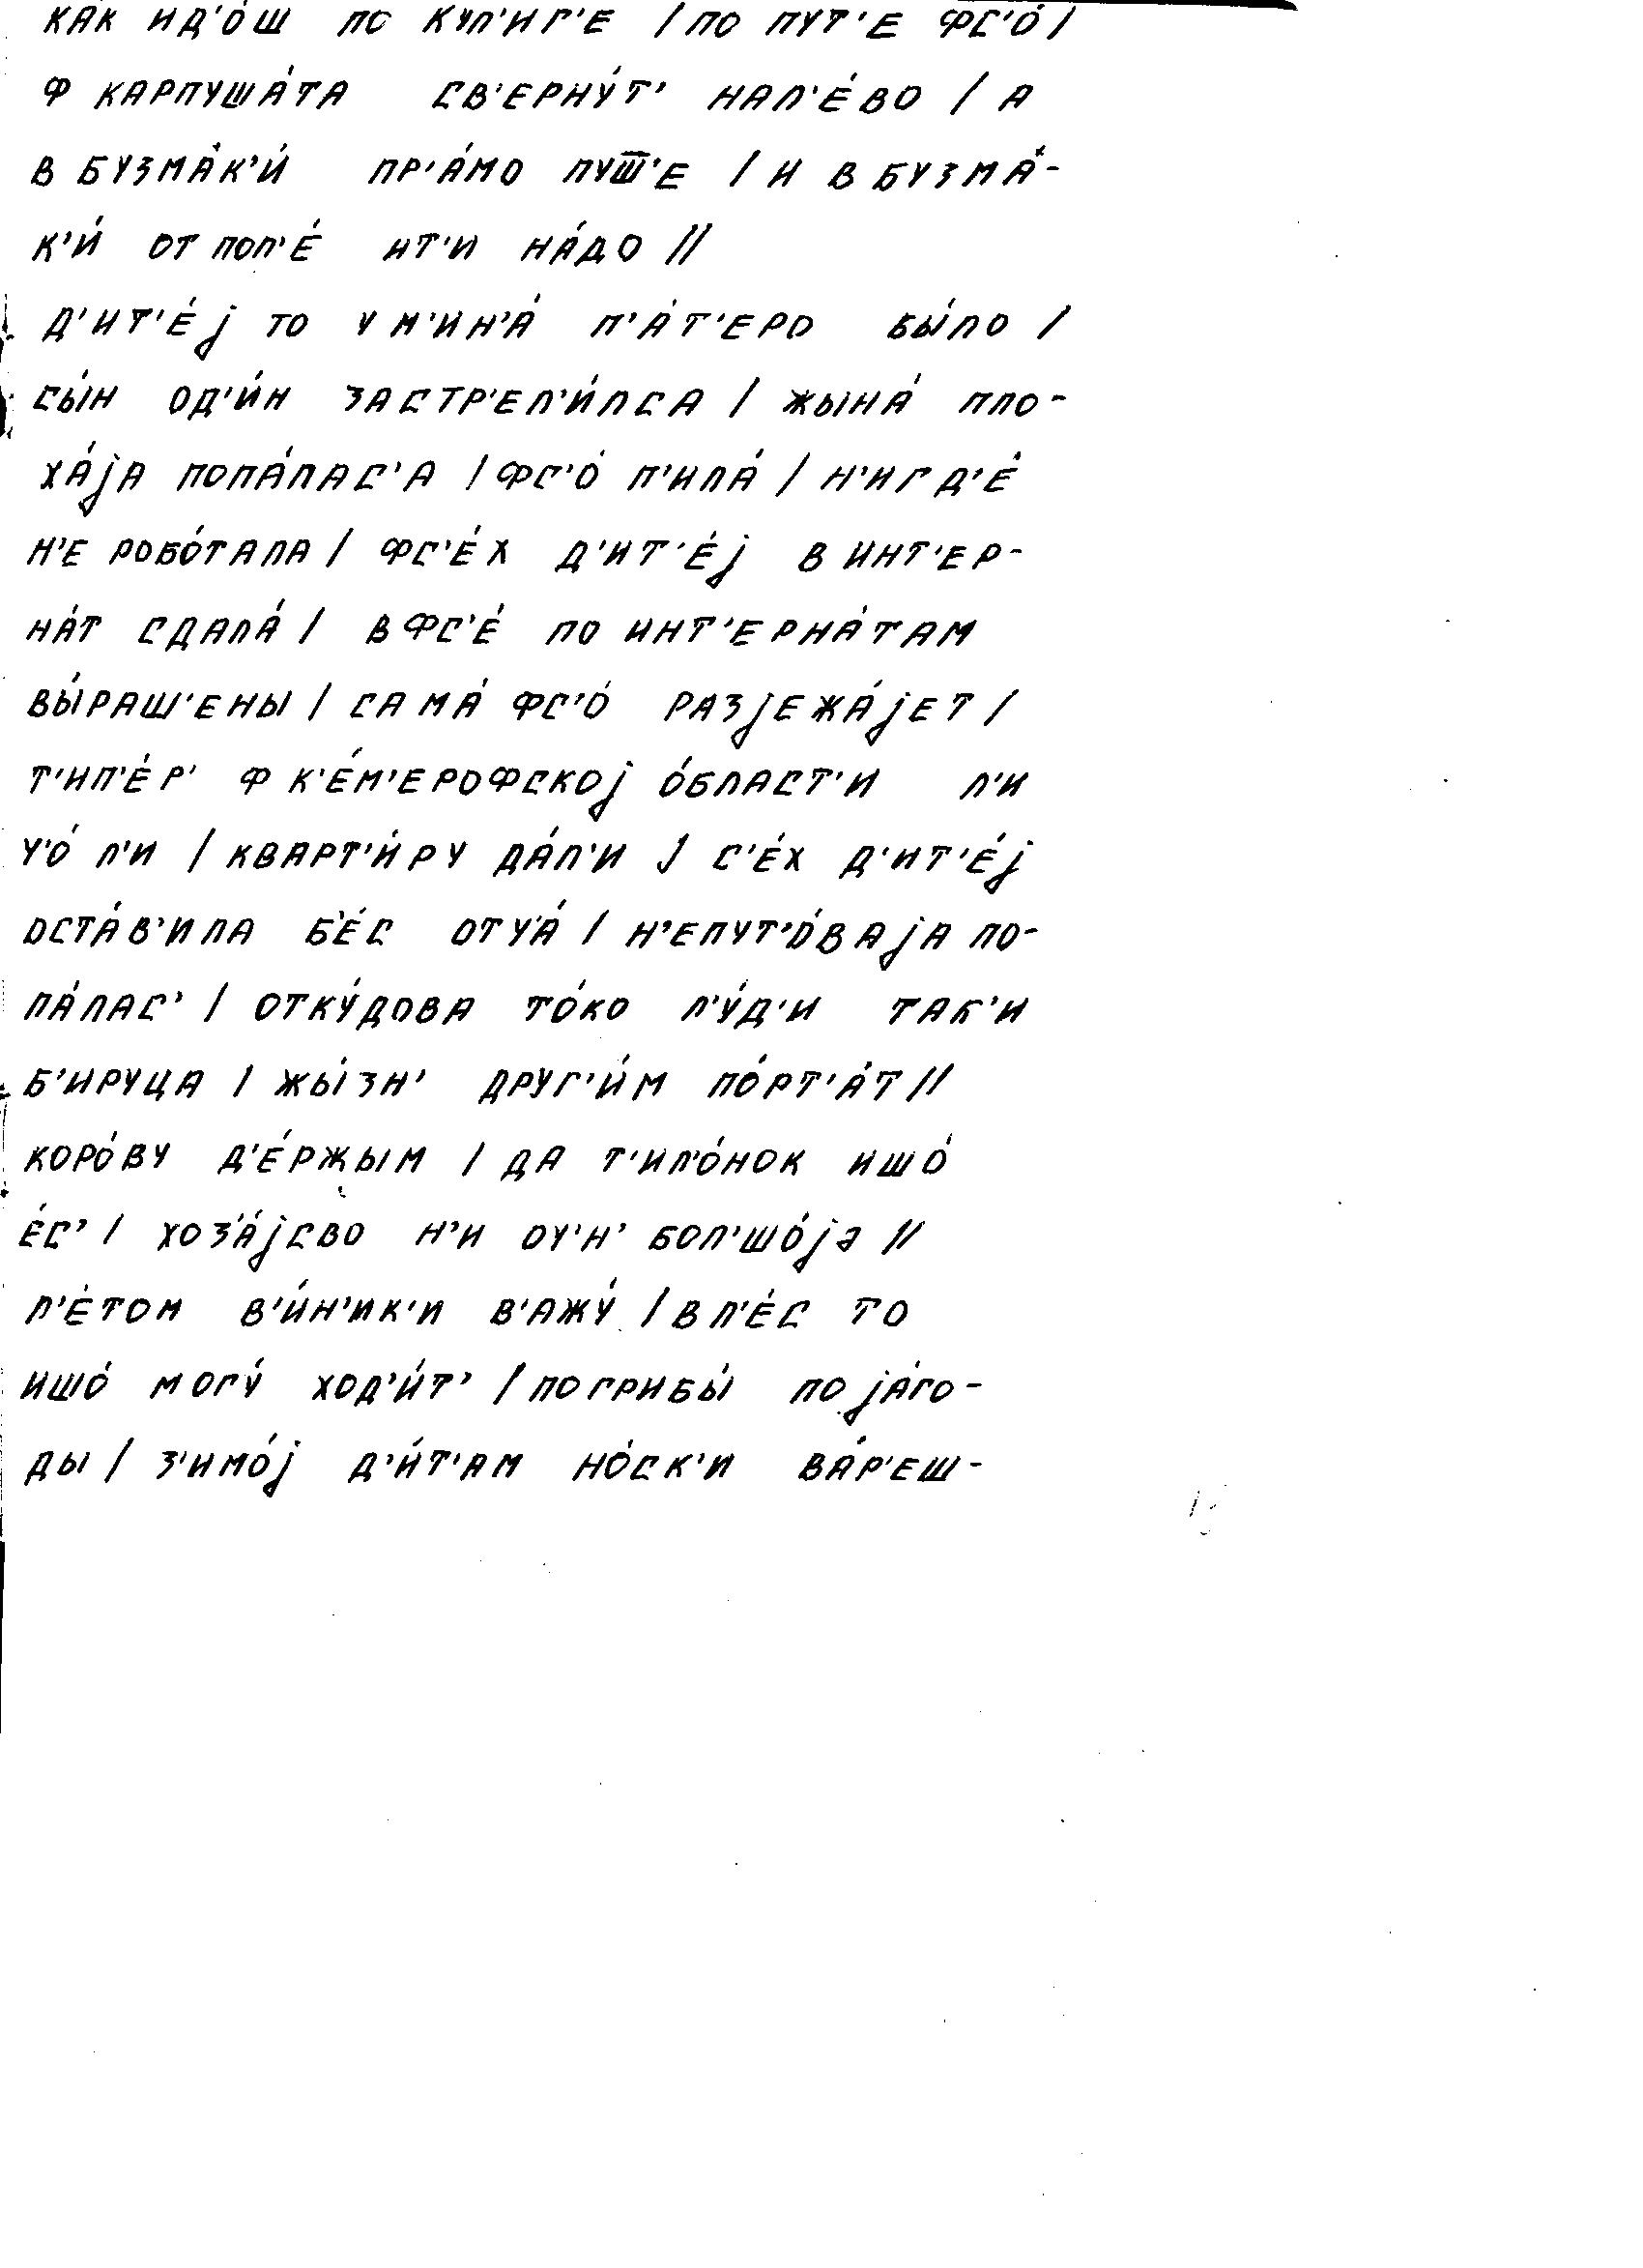 КАК ИД'О́Ш ПО КУЛ'ИГ'Е / ПО ПУТ'Е ФС'О́ /
Ф КАРПУША́ТА СВ'ЕРНУ́Т' НАЛ'Е́ВО / А
В БУЗМА́К'И́ ПР'А́МО ПУШ̅'Е / И В БУЗМА́-
К'И́ ОТ ПОЛ'Е́ ИТ'И НА́ДО //
Д'ИТ'Е́j ТО У М'ИН'А́ П'А́Т'ЕРО БЫ́ЛО /
СЫ́Н ОД'И́Н ЗАСТР'ЕЛ'И́ЛСА / ЖЫНА́ ПЛО-
ХА́jА ПОПА́ЛАС'А / ФС'О́ П'ИЛА́ / Н'ИГД'Е́
Н'Е РОБО́ТАЛА / ФС'Е́Х Д'ИТ'Е́j В ИНТ'ЕР-
НА́Т СДАЛА́ / В ФС'Е́ ПО ИНТ'ЕРНА́ТАМ
ВЫ́РАШ'ЕНЫ / САМА́ ФС'О́ РАЗjЕЖА́jЕТ /
Т'ИП'Е́Р' Ф К'Е́М'ЕРОФСКОj О́БЛАСТ'И Л'И
Ч'О́ Л'И / КВАРТ'И́РУ ДА́Л'И / С'Е́Х Д'ИТ'Е́j
ОСТА́В'ИЛА Б'Е́С ОТЧ'А́ / Н'ЕПУТ'О́ВАjА ПО-
ПА́ЛАС' / ОТКУ́ДОВА ТО́КО Л'У́Д'И ТАК'И
Б'ИРУЦА / ЖЫ́ЗН' ДРУГ'И́М ПО́РТ'А́Т //
КОРО́ВУ Д'Е́РЖЫМ / ДА Т'ИЛ'О́НОК ИШО́
Е́С' / ХОЗ'А́jСВО Н'И ОЧ'Н' БОЛ'ШО́jЭ //
Л'Е́ТОМ В'И́Н'ИК'И В'АЖУ́ / В Л'Е́С ТО
ИШО́ МОГУ́ ХОД'И́Т' / ПО ГРИБЫ́ ПО jА́ГО-
ДЫ / З'ИМО́j Д'И́Т'АМ НО́СК'И ВА́Р'ЕШ-